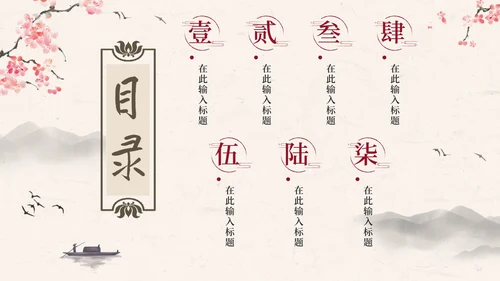 目录
壹
在此输入标题
贰
在此输入标题
叁
在此输入标题
肆
在此输入标题
伍
在此输入标题
陆
在此输入标题
柒
在此输入标题